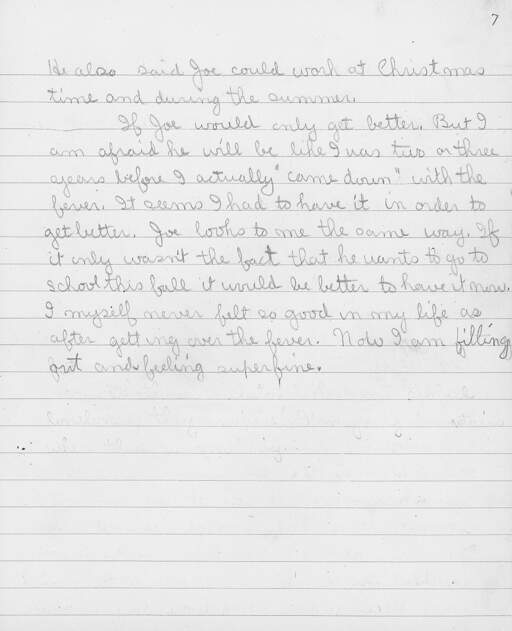 7
He also said Joe could work at Christmas
time and during the summer.
If Joe would only get better. But I
am afraid he will be like I was two or three
years before I actually "came down" with the
fever. It seems I had to have it in order to
get better. Joe looks to me the same way. If
it only wasn't the fact that he wants to go to
school this fall it would be better to have it now.
I myself never felt so good in my life as
after getting over the fever. Now I am filling
out and feeling superfine.